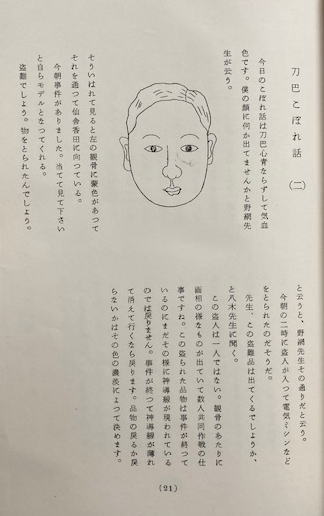 刀巴こぼれ話　(二)
今日のこぼれ話は刀巴心青ならずして気血
色です。僕の顔に何か出てませんかと野網先
生が云う。
そういはれて見ると左の観骨に蒙色があつて
それを通つて仙舎香田に向つている。
今朝事件がありました。当てて見て下さい
と自らモデルとなつてくれる。
盗難でしよう。物をとられたんでしよう。
と云うと、野網先生その通りだと云う。
今朝の二時に盗人が入つて電気ミシンなど
をとられたのだそうだ。
先生、この盗難品は出てくるでしようか、
と八木先生に聞く。
この盗人は一人ではない。観骨のあたりに
面相の様なものが出ていて数人共同作戦の仕
事ですね。この盗られた品物は事件が終つて
いるのにまだその様に神導線が現われている
のでは戻りません。事件が終つて神導線が薄れ
て消えて行くなら戻ります。品物の戻るか戻
らないかはその色の濃淡によつて決めます。
(21)